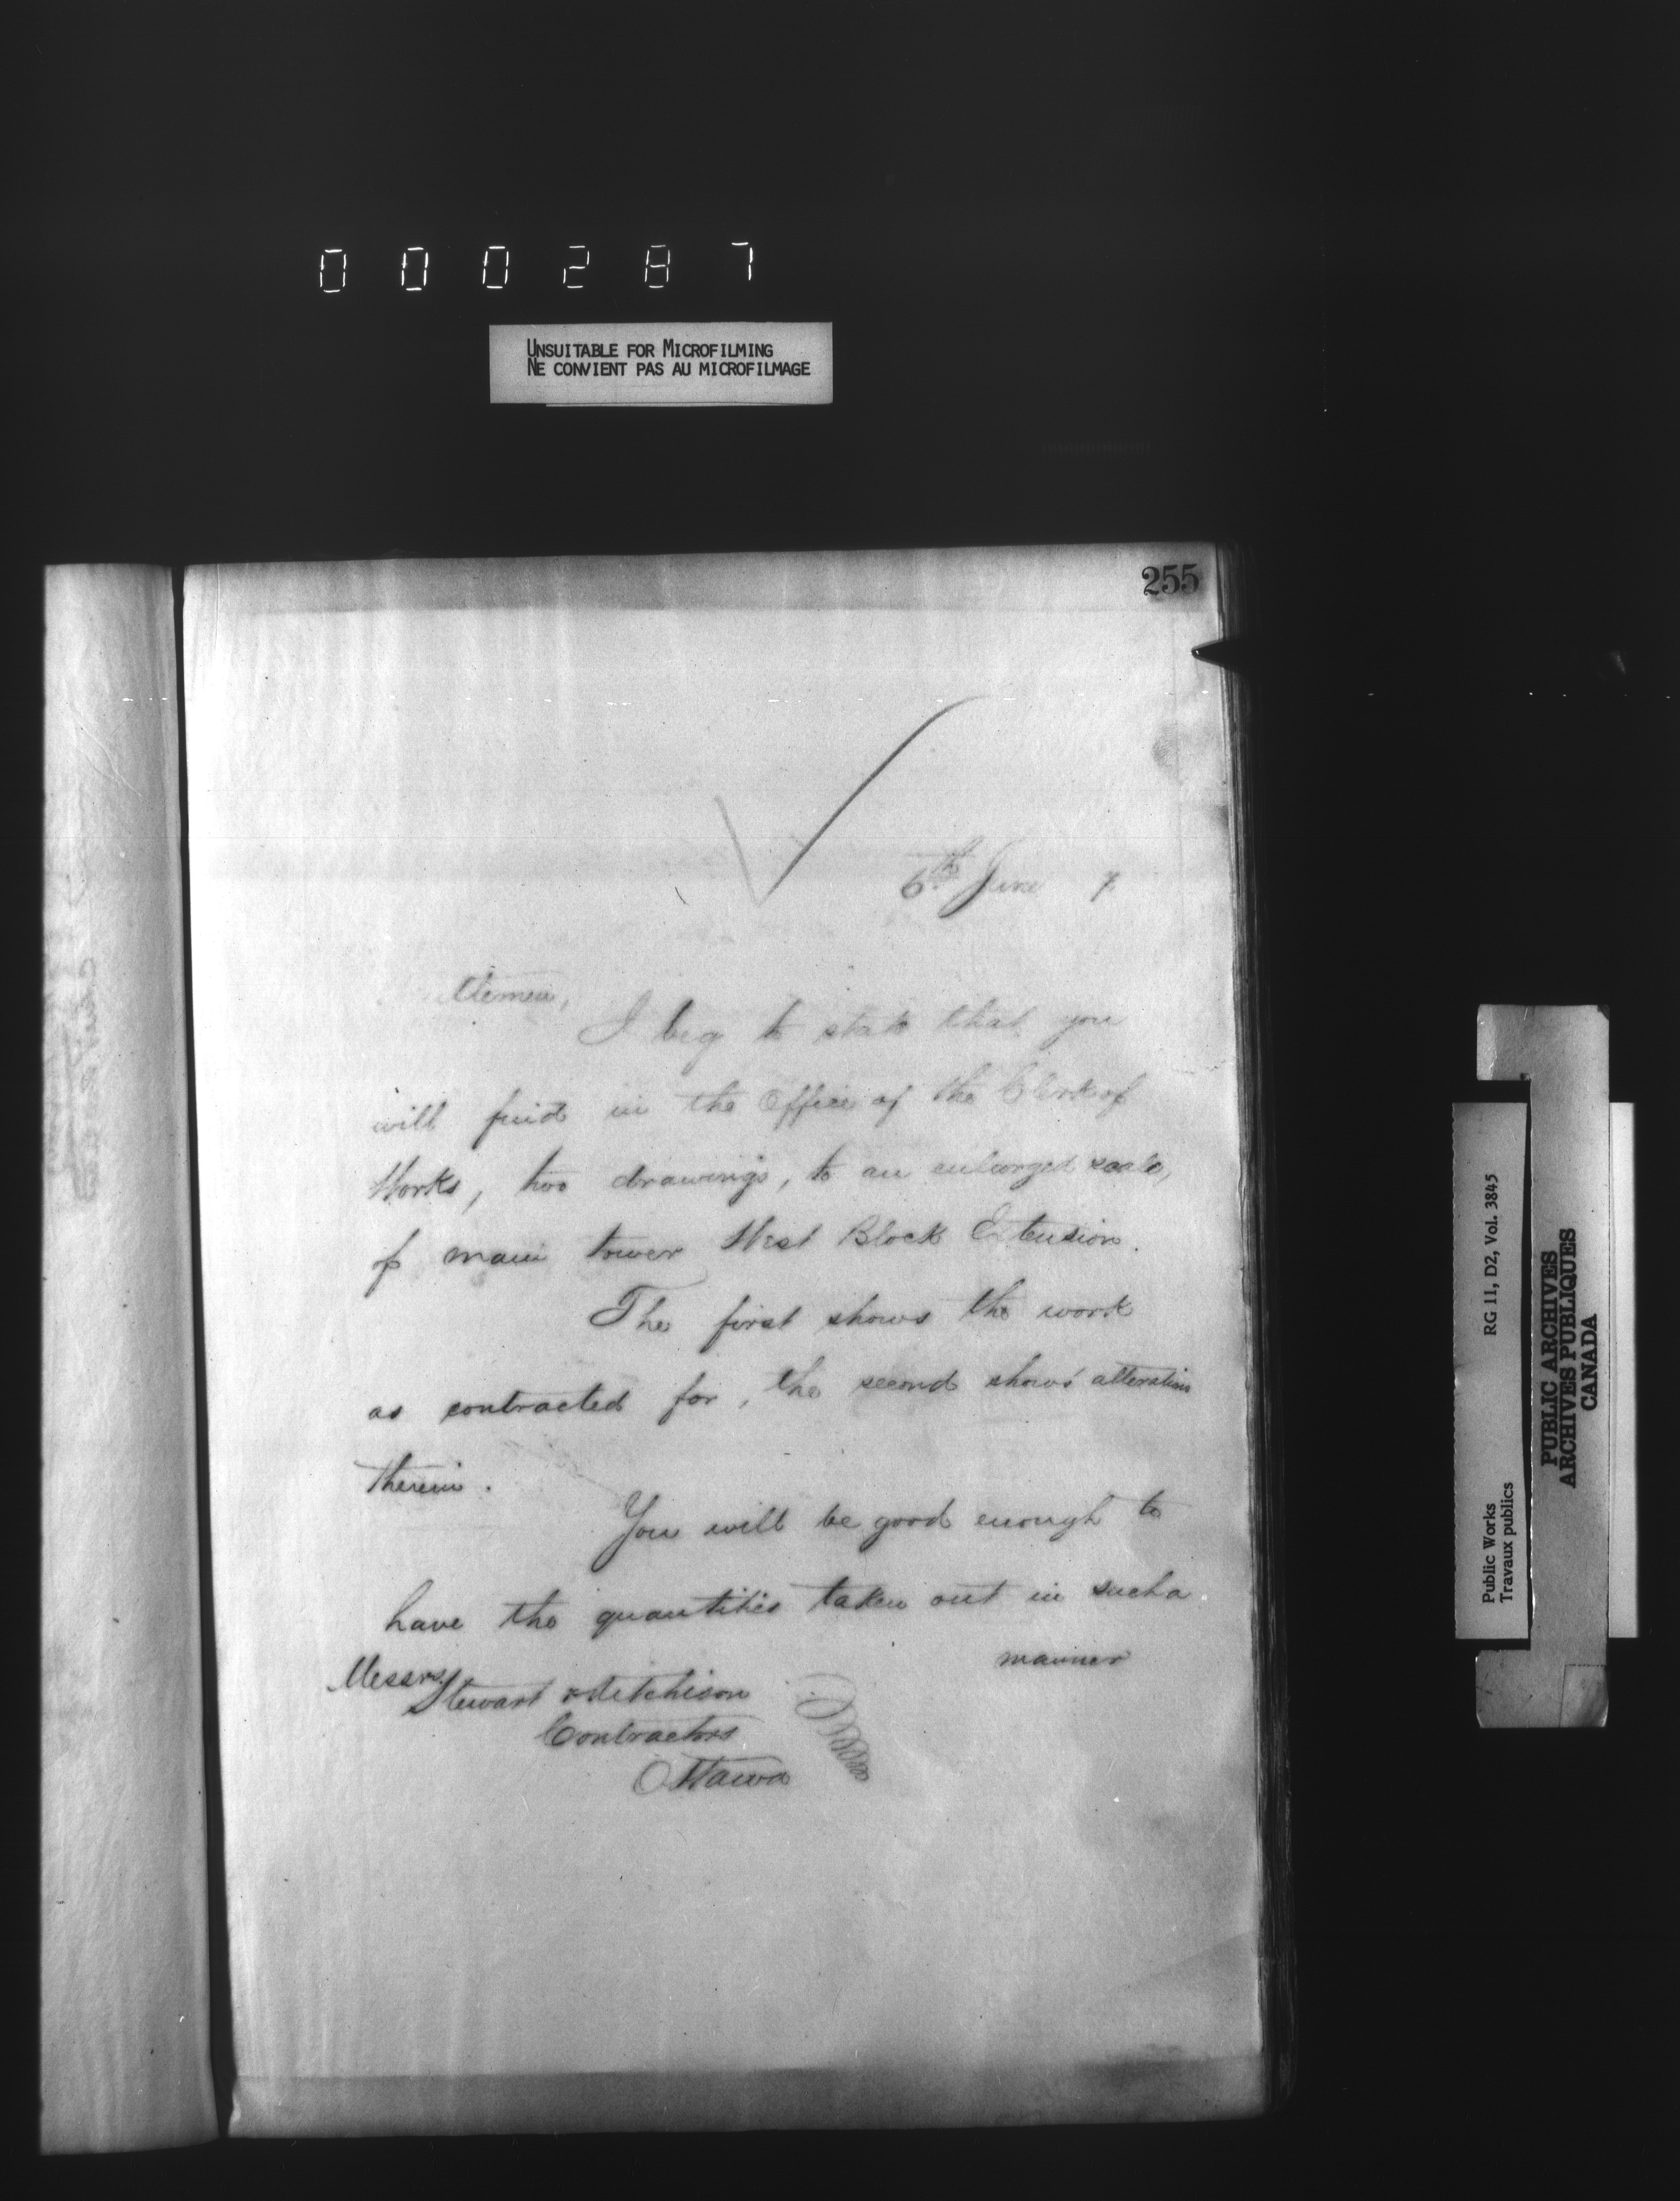 000287
UNSUITABLE FOR MICROFILMING
NE CONVIENT PAS AU MICROFILMAGE
255
6th June 7
ttlemen,
I beg to state that you
will find in the Office of the Clerk of
Works, two drawings, to an enlarged scale,
of main tower West Block Extension.
The first shows the work
as contracted for, the second shows alterations
therein.
You will be good enough to
have the quantities taken out in such a
manner
Messrs
Stewart & Mitchison
Contractors
Ottawa
Public Works RG 11, D2, Vol. 3845
Travaux publics
PUBLIC ARCHIVES
ARCHIVES PUBLIQUES
CANADA